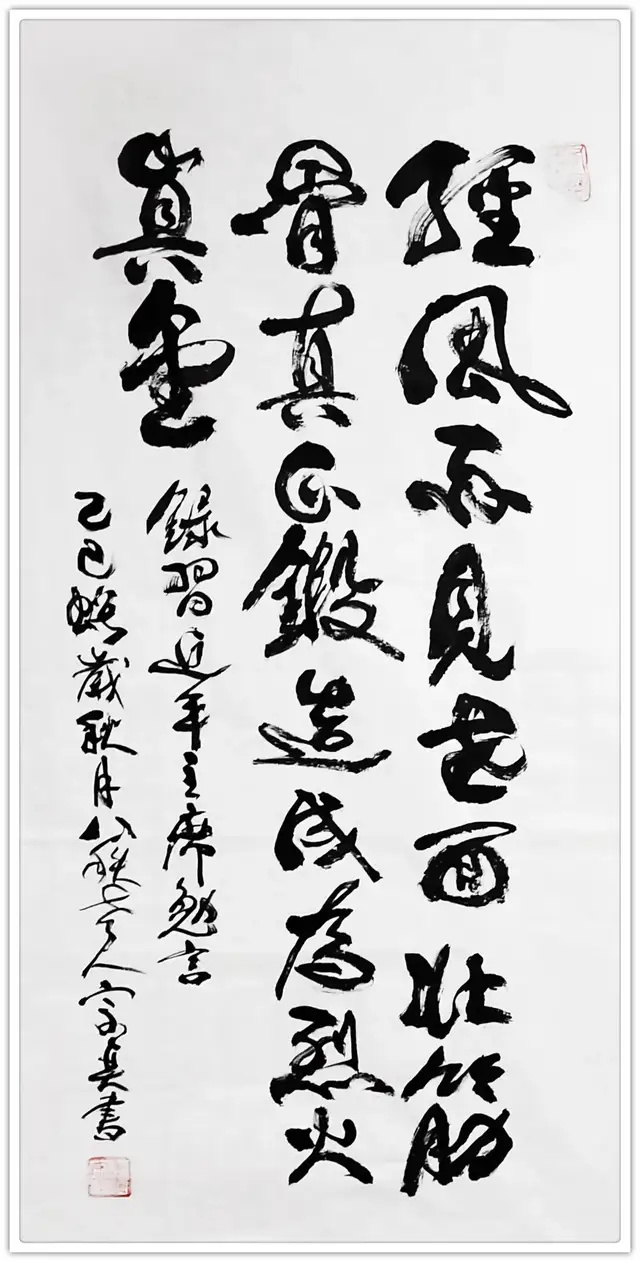 經風雨見世面壯筋
骨真正鍛造成為烈火
真金
錄習近平主席勉言
乙巳蛇歲秋月八秩人宗書